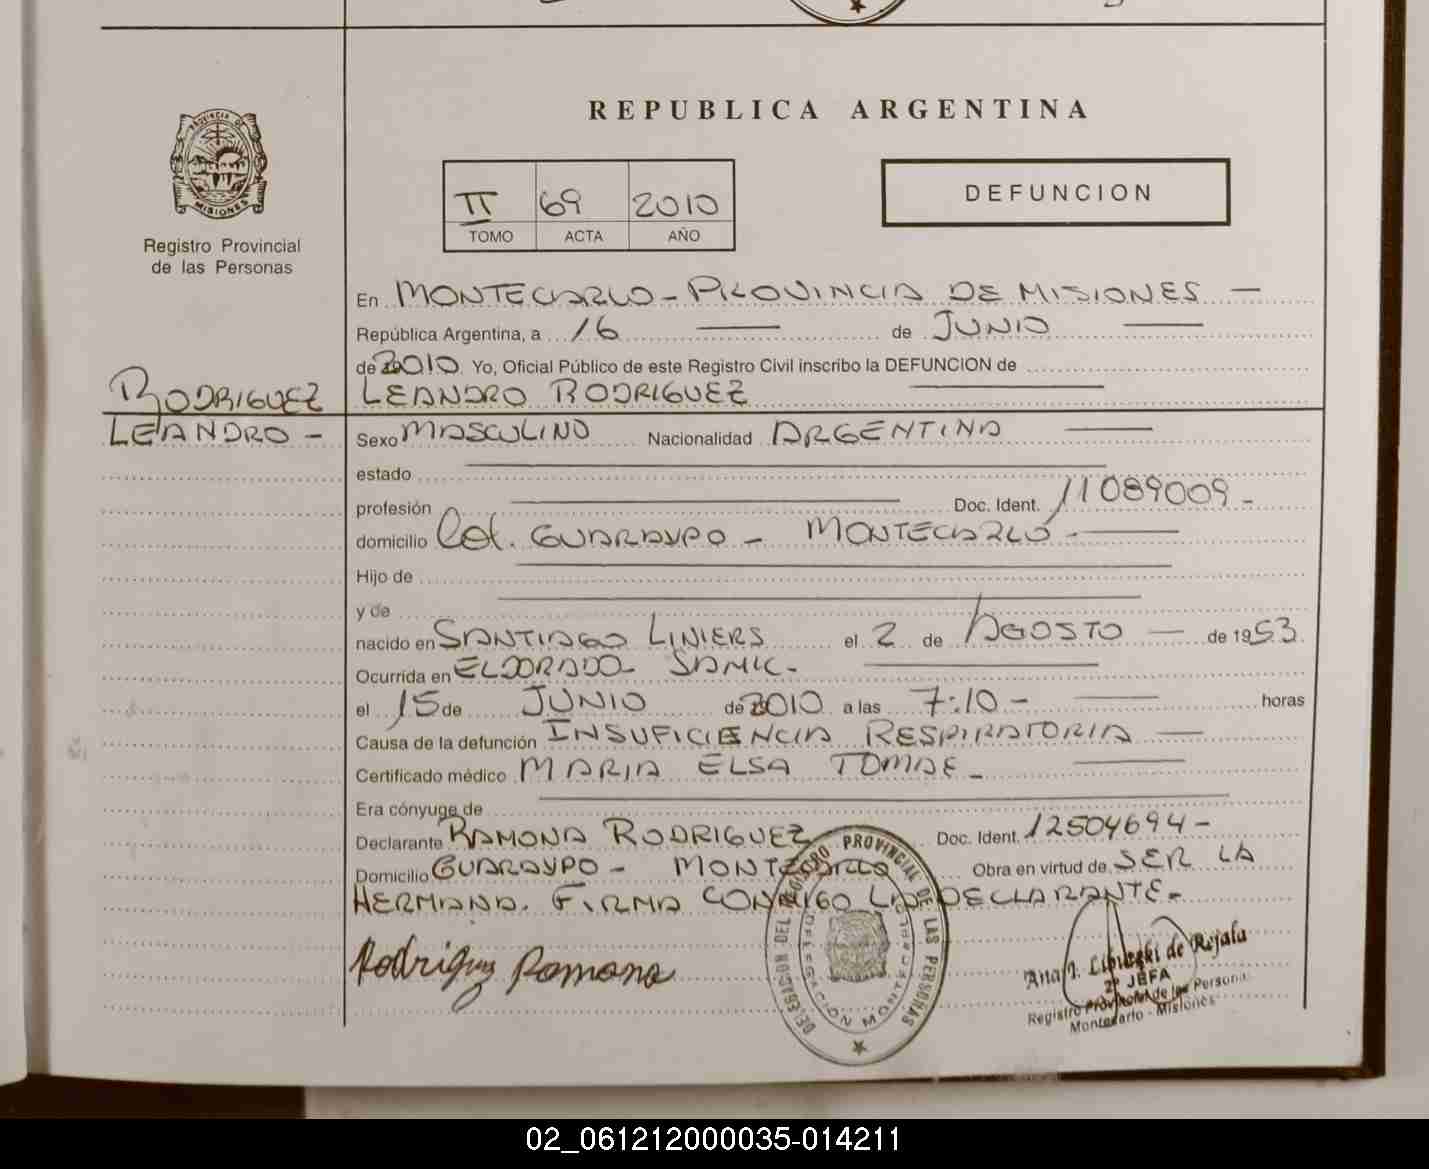 REPUBLICA ARGENTINA
PROVINCIA DE
MISIONES
Registro Provincial
de las Personas
II 69 2010
TOMO ACTA AÑO
DEFUNCION
En MONTECARLO - PROVINCIA DE MISIONES —
República Argentina, a 16 — de JUNIO —
de 2010 Yo, Oficial Público de este Registro Civil inscribo la DEFUNCION de
RODRIGUEZ
LEANDRO -
LEANDRO RODRIGUEZ —
Sexo MASCULINO Nacionalidad ARGENTINA —
estado —
profesión — Doc. Ident. 11089009 -
domicilio Col. GUARAYPO - MONTECARLO - —
Hijo de —
y de —
nacido en SANTIAGO LINIERS el 2 de AGOSTO — de 1953.
Ocurrida en ELDORADO - SAMIC - —
el 15 de JUNIO de 2010 a las 7:10 - — horas
Causa de la defunción INSUFICIENCIA RESPIRATORIA —
Certificado médico MARIA ELSA TOMAE - —
Era cónyuge de —
Declarante RAMONA RODRIGUEZ Doc. Ident. 12504694 -
Domicilio GUARAYPO - MONTECARLO Obra en virtud de SER LA
HERMANA. FIRMA CONMIGO LA DECLARANTE -
Rodriguez Ramona
DELEGACION DEL REGISTRO PROVINCIAL DE LAS PERSONAS
DELEGACION MONTECARLO
de Rejala
2º JEFA
Registro Provincial de las Personas
Montecarlo - Misiones
02_061212000035-014211